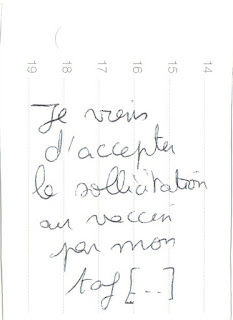 19 18 17 16 15 14
Je viens
d'accepter
la sollicitation
au vaccin
par mon
taf [...]